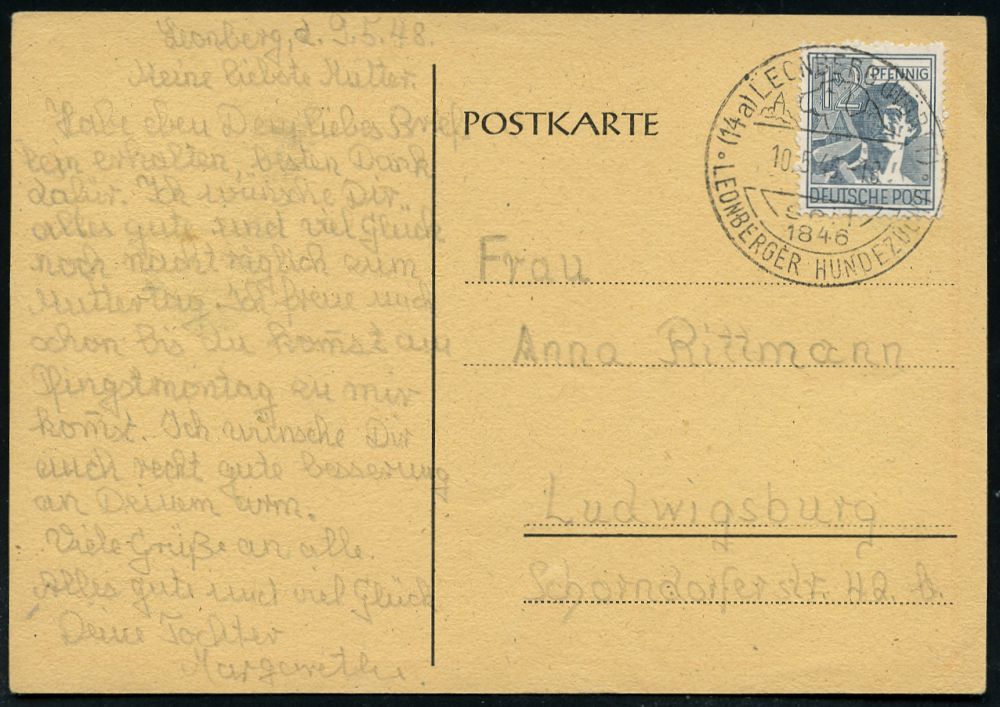 Leonberg, d. 9.5.48.
Meine liebste Mutter.
Habe eben Dein liebes Brief
lein erhalten, besten Dank
dafür. Ich wünsche Dir
alles gute und viel Glück
noch nachträglich zum
Muttertag. Ich freue mich
schon bis du kom̅st am
Pfingstmontag zu mir
kom̅st. Ich wünsche Dir
auch recht gute besserung
an Deinem arm.
Viele Grüße an alle.
Alles gute und viel Glück
Deine Tochter
Margarethe.
POSTKARTE
12 PFENNIG
DEUTSCHE POST
(14a) LEONBERG
10.5.48
seit
1846
LEONBERGER HUNDEZUCHT
Frau
Anna Rittmann
Ludwigsburg
Schorndorferstr. 42 b.